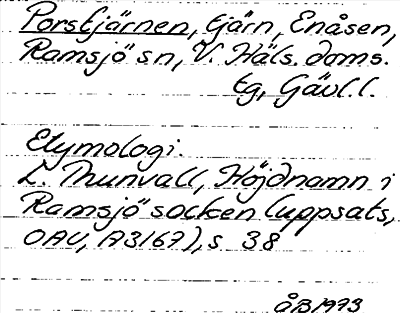 Porstjärnen, tjärn, Enåsen,
Ramsjö sn, V. Häls. doms.
tg, Gävl. l.
Etymologi.
L. Munvall, Höjdnamn i
Ramsjö socken (uppsats,
OAU, A3167), s 38
ÅB 1973